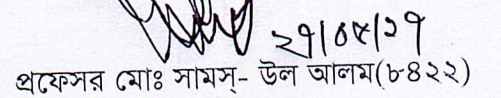 ২৭/০৫/২৭
প্রফেসর মোঃ সামস্- উল আলম(৮৪২২)